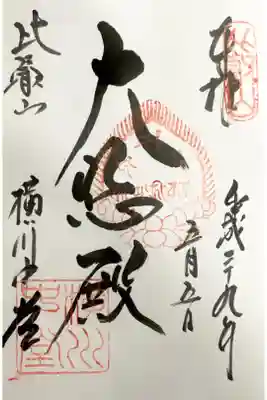 奉拝
平成二九年
五月五日
大悲殿
比叡山
横川中堂